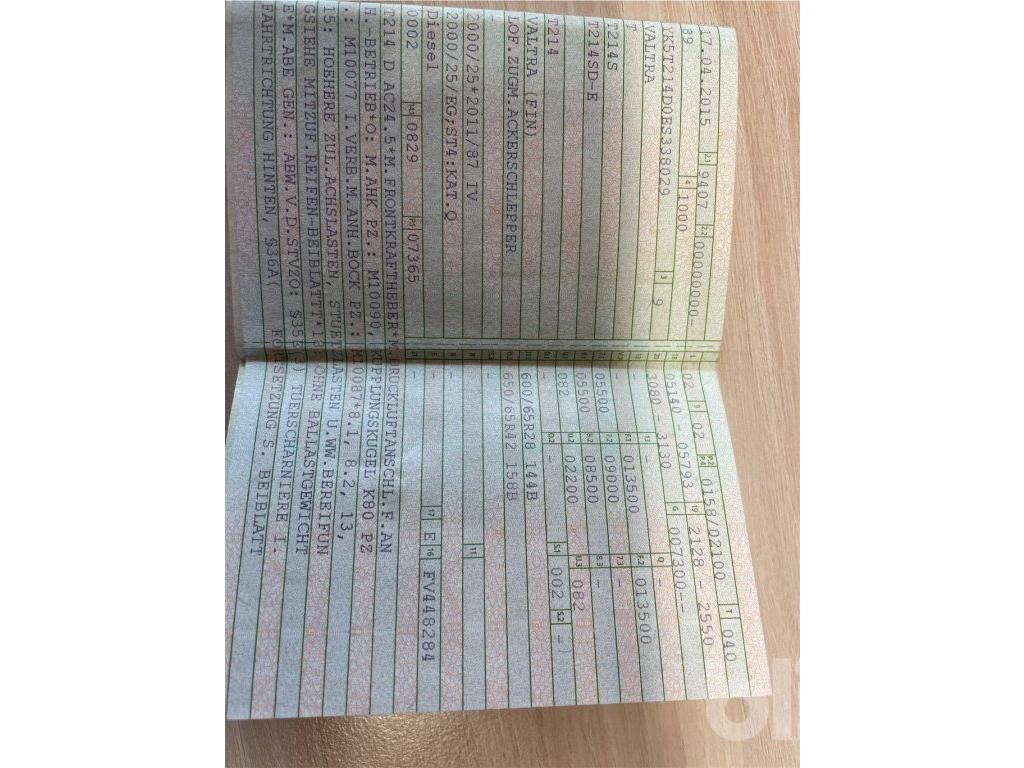 17.04.2015 2.1 9407 2.2 00000000-
89 4 1000 3 9
YK5T214D0ES338029
VALTRA
T
T214S
T214SD-E
T214
VALTRA (FIN)
LOF.ZUGM.ACKERSCHLEPPER
2000/25*2011/87 IV
2000/25/EG;ST4:KAT.Q
Diesel
0002 0829 07365
L 02 9 02 P.2 P.4 0158/02100 T 040
18 05140 - 05793 19 2128 - 2550
20 3080 - 3130 G 007300--
12 - 13 - Q -
F.1 013500 F.2 013500
05500 7.2 09000 7.3 -
05500 8.2 08500 8.3 -
U.1 082 U.2 02200 U.3 082
- D.2 - S.1 002 S.2 -
600/65R28 144B
650/65R42 158B
R - 11
- 17 E 16 FV448284
21 -
T214 D AC24.5*M.FRONTKRAFTHEBER*M.DRUCKLUFTANSCHL.F.AN
H.-BETRIEB*O: M.AHK PZ.: M10090, KUPPLUNGSKUGEL K80 PZ
.: M10077 I.VERB.M.ANH.BOCK PZ.: M10087*8.1, 8.2, 13,
15: HOEHERE ZUL.ACHSLASTEN, STUETZLASTEN U.WW.BEREIFUN
GSIEHE MITZUF.REIFEN-BEIBLATTT OHNE BALLASTGEWICHT
E*M.ABE GEN.: ABW.V.D.STVZO: TUERSCHARNIERE I.
FAHRTRICHTUNG HINTEN, §36A( FORTSETZUNG S. BEIBLATT
ol